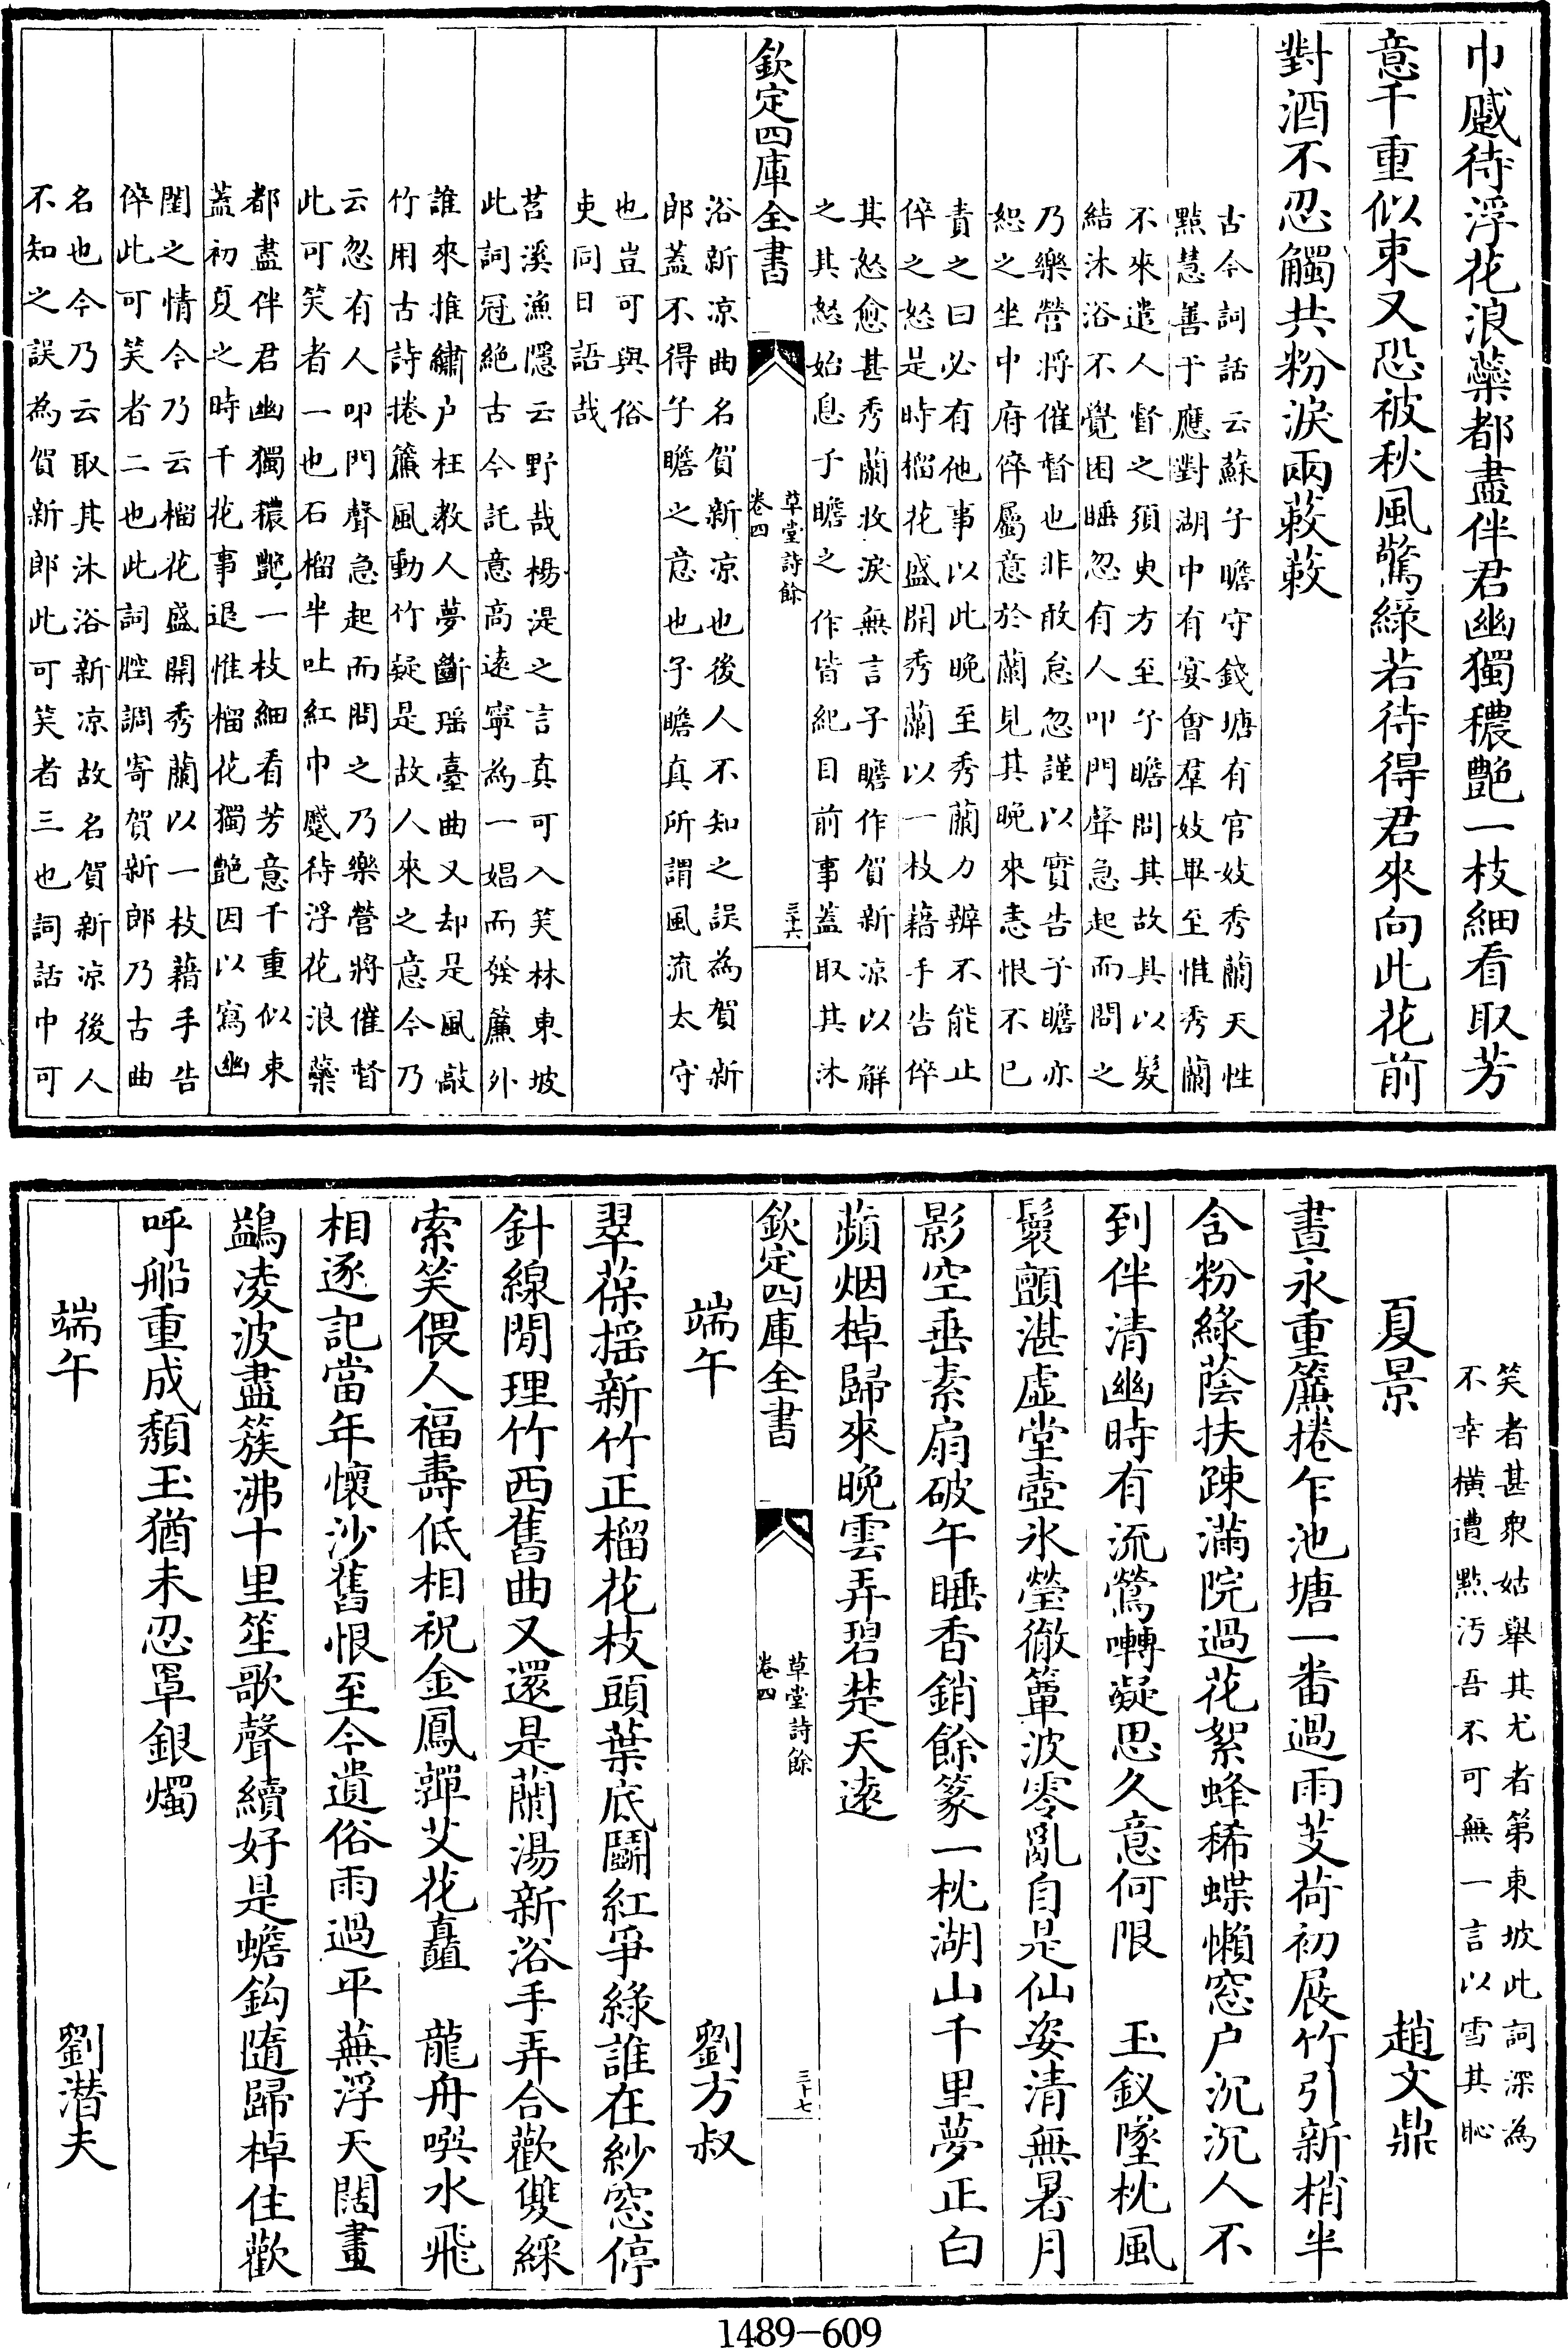 巾蹙待浮花浪蘂都盡伴君幽獨穠艶一枝細看取芳
意千重似束又恐被秋風驚綠若待得君來向此花前
對酒不忍觸共粉淚兩蔌蔌
古今詞話云蘇子瞻守錢塘有官妓秀蘭天性
黠慧善于應對湖中有宴會羣妓畢至惟秀蘭
不來遣人督之須臾方至子瞻問其故具以髮
結沐浴不覺困睡忽有人叩門聲急起而問之
乃樂營將催督也非敢怠忽謹以實告子瞻亦
恕之坐中府倅屬意於蘭見其晚來恚恨不已
責之曰必有他事以此晚至秀蘭力辨不能止
倅之怒是時榴花盛開秀蘭以一枝藉手告倅
其怒愈甚秀蘭收淚無言子瞻作賀新凉以解
之其怒始息子瞻之作皆紀目前事蓋取其沐
欽定四庫全書
草堂詩餘
卷四
三十六
浴新凉曲名賀新凉也後人不知之誤為賀新
郎蓋不得子瞻之意也子瞻真所謂風流太守
也豈可與俗
吏同日語哉
苕溪漁隱云野哉楊湜之言真可入笑林東坡
此詞冠絶古今託意高遠寧為一娼而發簾外
誰來推繡户枉教人夢斷瑶臺曲又却是風敲
竹用古詩捲簾風動竹疑是故人來之意今乃
云忽有人叩門聲急起而問之乃樂營將催督
此可笑者一也石榴半吐紅巾蹙待浮花浪蘂
都盡伴君幽獨穠艶一枝細看芳意千重似束
蓋初夏之時千花事退惟榴花獨艶因以寫幽
閨之情今乃云榴花盛開秀蘭以一枝藉手告
倅此可笑者二也此詞腔調寄賀新郎乃古曲
名也今乃云取其沐浴新凉故名賀新凉後人
不知之誤為賀新郎此可笑者三也詞話中可
笑者甚衆姑舉其尤者第東坡此詞深為
不幸橫遭點汚吾不可無一言以雪其恥
夏景　趙文鼎
晝永重簾捲乍池塘一番過雨芰荷初展竹引新梢半
含粉綠蔭扶踈滿院過花絮蜂稀蝶懶窓户沉沉人不
到伴清幽時有流鶯囀凝思久意何限　玉釵墜枕風
鬟顫湛虛堂壺氷瑩徹簟波零亂自是仙姿清無暑月
影空垂素扇破午睡香銷餘篆一枕湖山千里夢正白
蘋烟棹歸來晚雲弄碧楚天遠
欽定四庫全書
草堂詩餘
卷四
三十七
端午　劉方叔
翠葆揺新竹正榴花枝頭葉底鬬紅爭綠誰在紗窓停
針線閒理竹西舊曲又還是蘭湯新浴手弄合歡雙綵
索笑偎人福壽低相祝金鳳嚲艾花矗　龍舟噀水飛
相逐記當年懷沙舊恨至今遺俗雨過平蕪浮天闊畫
鷁凌波盡簇沸十里笙歌聲續好是蟾鈎隨歸棹任歡
呼船重成頽玉猶未忍罩銀燭
端午　劉潛夫
1489-609